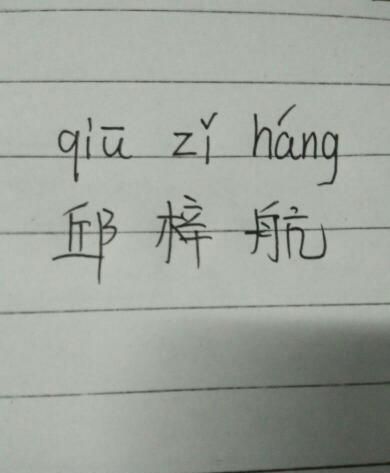 qiū zǐ háng
邱梓航